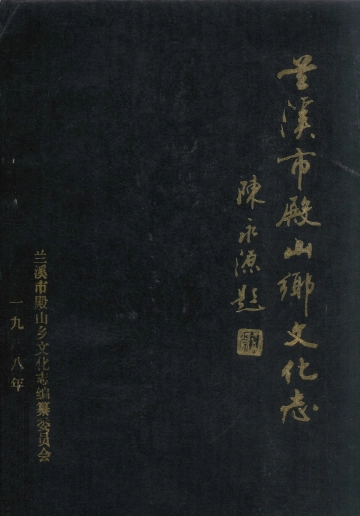 兰溪市殿山鄉文化志
陳永源題
兰溪市殿山乡文化志编纂委员会
一九 八年